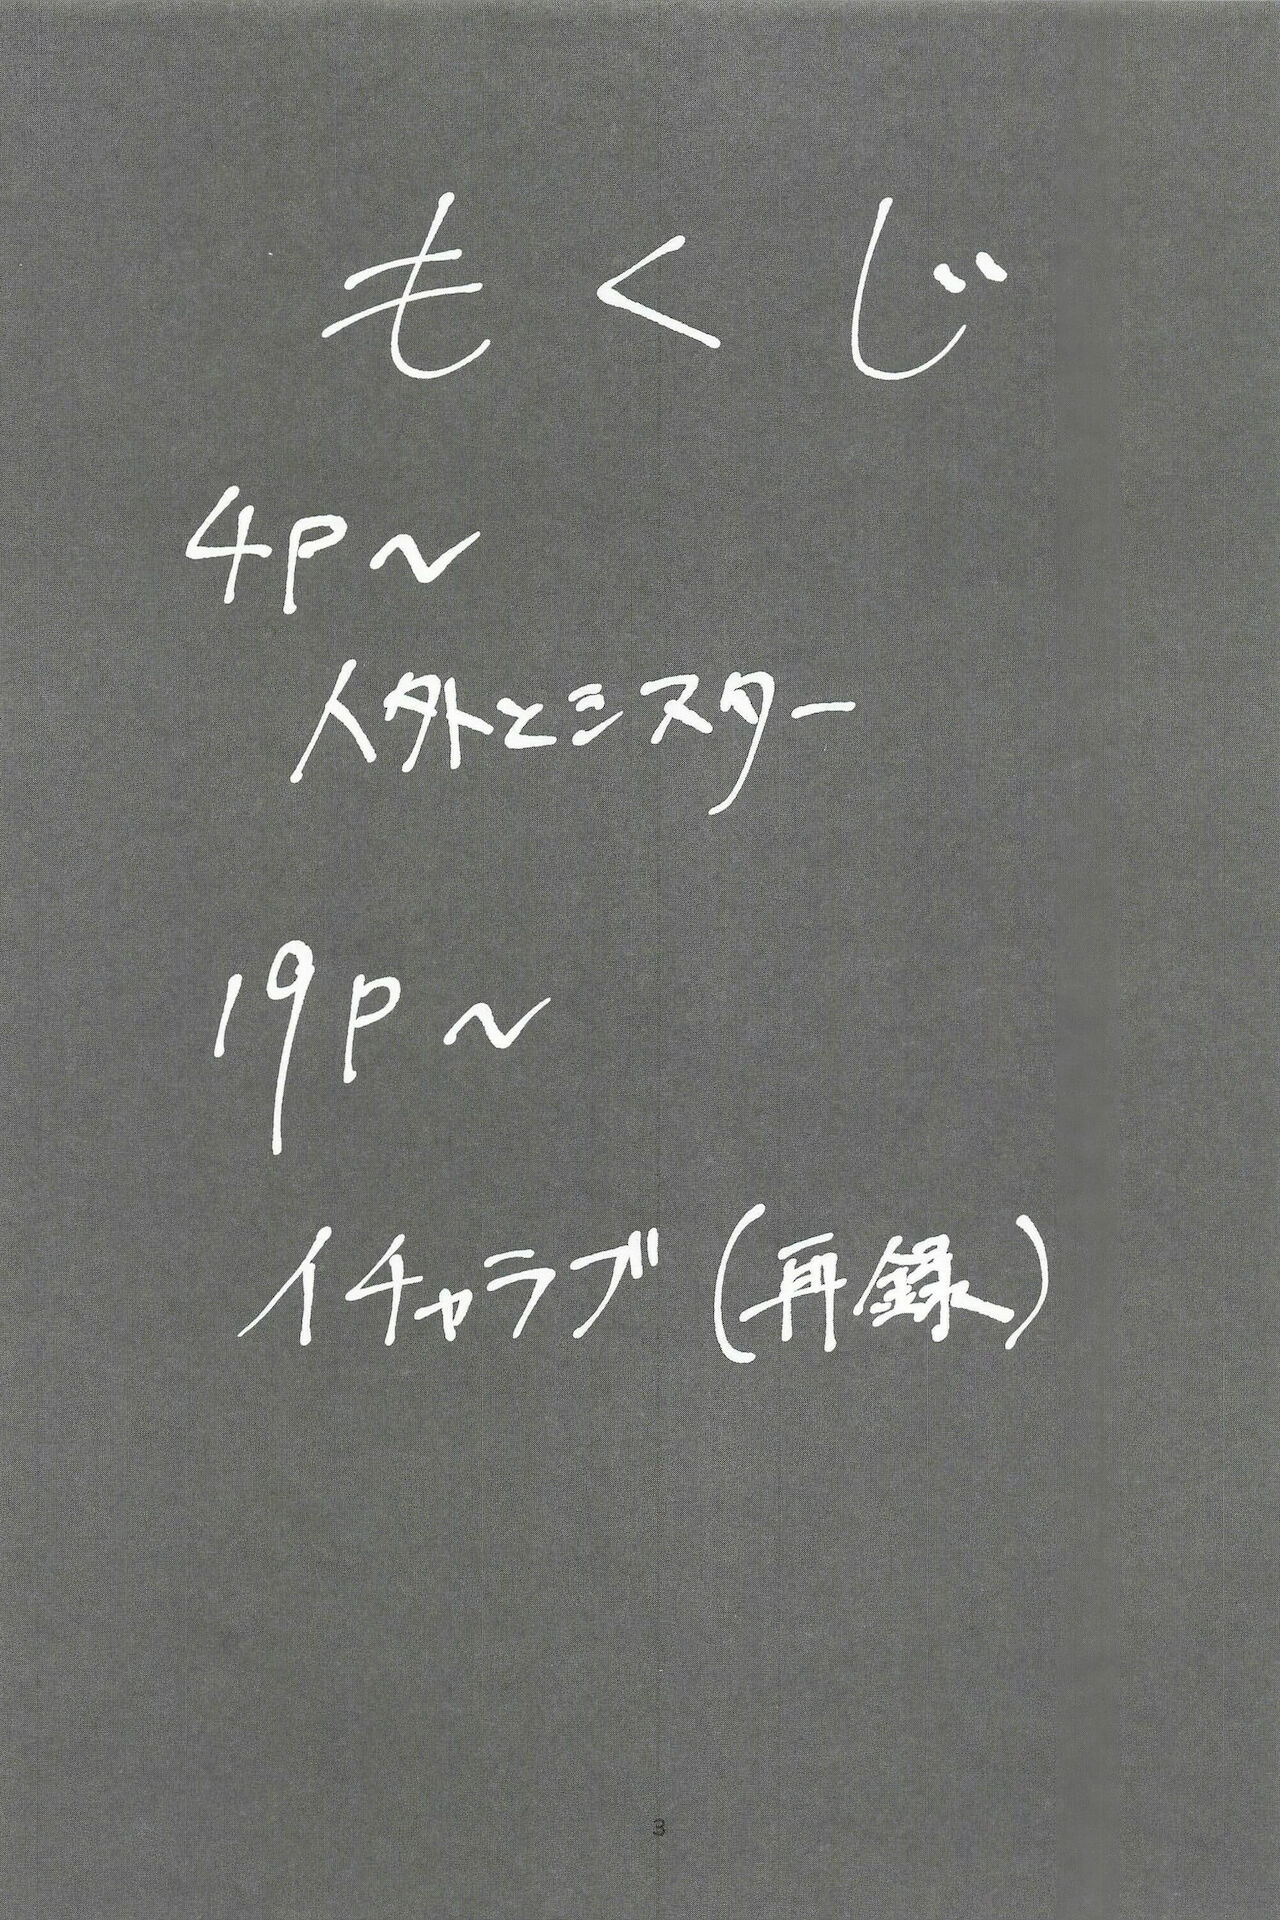 もくじ
4P~
人外とシスター
19P~
イチャラブ(再録)
3